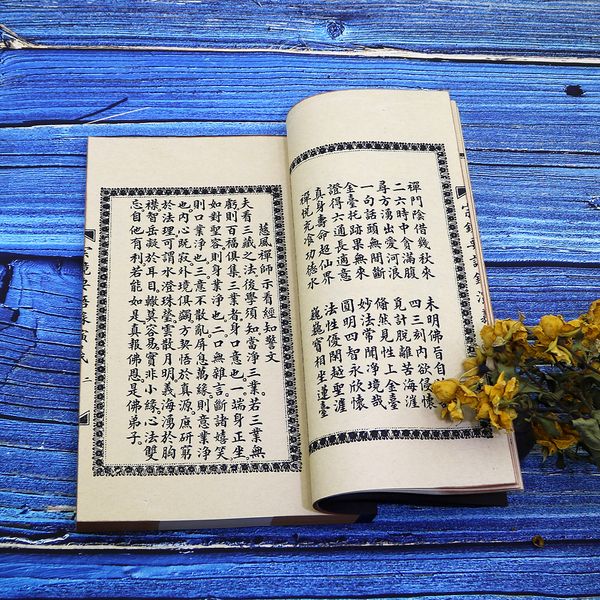 禪門陰借幾秋來 未明佛旨自
二六時中貪滿腹 四三刻內欲侵懷
尋方湧出愛河浪 覓計脫離苦海涯
一句話頭無間斷 翛然見性上金臺
金臺托跡果無來 妙法常聞淨境哉
證得六通長適意 圓明四智永欣懷
真身壽命超仙界 法性優閑越聖涯
禪悅充飡功德水 巍巍寶相坐蓮臺
慈風禪師示看經知警文
夫看三藏之法後學須知當淨三業。若三業無
虧則百福俱集三業者身口意也。一端身正坐。
如對聖容則身業淨也二口無雜言。斷諸嬉笑
則口業淨也三意不散亂屏息萬緣。則意業淨
也內心既寂外境俱捐方契悟於真源。庶研窮
於法理可謂水澄珠瑩雲散月明義海湧於胸
襟智岳凝於耳目輒莫容易實非小緣心法雙
忘自他有利若能如是真報佛恩是佛弟子